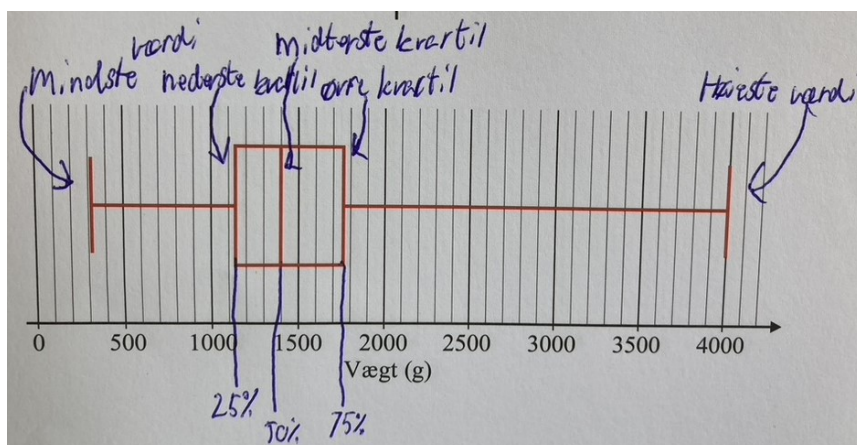 værdi midterste kvartil
Mindste nederste kvartil øvre kvartil Høieste værdi
0 500 1000 1500 2000 2500 3000 3500 4000
Vægt (g)
25% 50% 75%